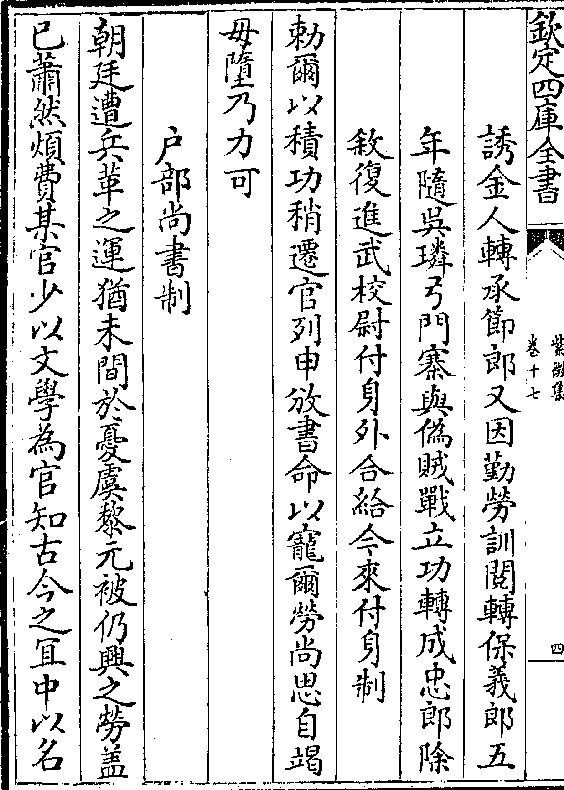 欽定四庫全書
紫微集
卷十七
四
誘金人轉承節郎又因勤勞訓閱轉保義郎五
年隨吳璘弓門寨與偽賊戰立功轉成忠郎除
敘復進武校尉付身外合給今來付身制
勅爾以積功稍遷官列申攽書命以寵爾勞尚思自竭
毋墮乃力可
户部尚書制
朝廷遭兵革之運猶未間於憂虞黎元被仍興之勞盖
已蕭然煩費某官少以文學為官知古今之宜中以名